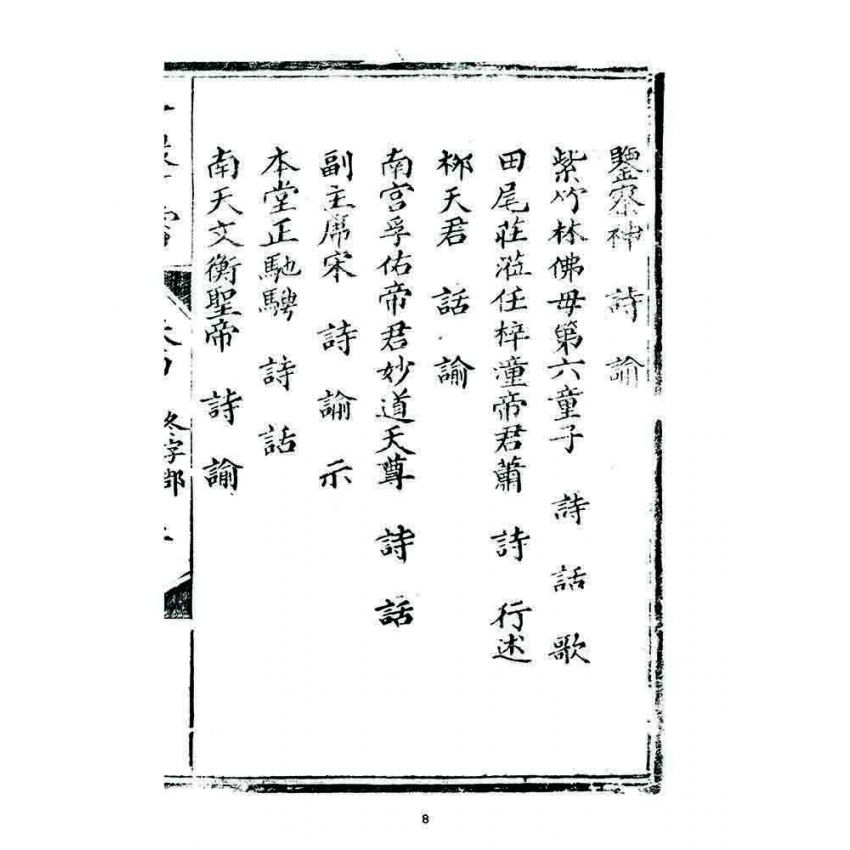 鑒察神 詩 諭
紫竹林佛母第六童子 詩 話 歌
田尾莊涖任梓潼帝君蕭 詩 行述
柳天君 話 諭
南宮孚佑帝君妙道天尊 詩 話
副主席宋 詩 諭 示
本堂正馳騁 詩 話
南天文衡聖帝 詩 諭
冬字部
8